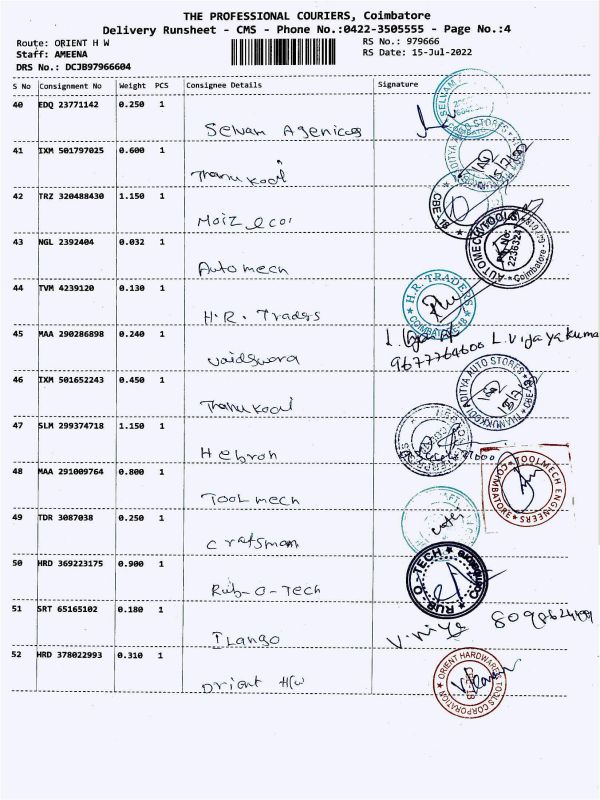 THE PROFESSIONAL COURIERS, Coimbatore
Delivery Runsheet - CMS - Phone No.:0422-3505555 - Page No.:4
Route: ORIENT H W
RS No.: 979666
Staff: AMEENA
RS Date: 15-Jul-2022
DRS No.: DCJB97966604
S No Consignment No Weight PCS Consignee Details Signature
40 EDQ 23771142 0.250 1
Selvam Agenices
SELVAM
41 IXM 501797025 0.600 1
Thanukodi
ADITYA AUTO STORES
42 TRZ 320488430 1.150 1
Moiz ecoi
CBE-18
43 NGL 2392404 0.032 1
Automech
AUTOMECH TOOLS Coimbatore
44 TVM 4239120 0.130 1
H.R. Traders
H.R. TRADERS COIMBATORE-18
45 MAA 290286898 0.240 1
Vaideswara
L. Vijayakuma
9677764600
46 IXM 501652243 0.450 1
Thanukodi
ADITYA AUTO STORES
47 SLM 299374718 1.150 1
Hebron
48 MAA 291009764 0.800 1
Toolmech
TOOLMECH ENGINEERS COIMBATORE
49 TDR 3087038 0.250 1
Craftsman
50 HRD 369223175 0.900 1
Rub-O-Tech
RUB-O-TECH Coimbatore
51 SRT 65165102 0.180 1
Ilango
52 HRD 378022993 0.310 1
Orient H/W
ORIENT HARDWARE TOOLS CORPORATION